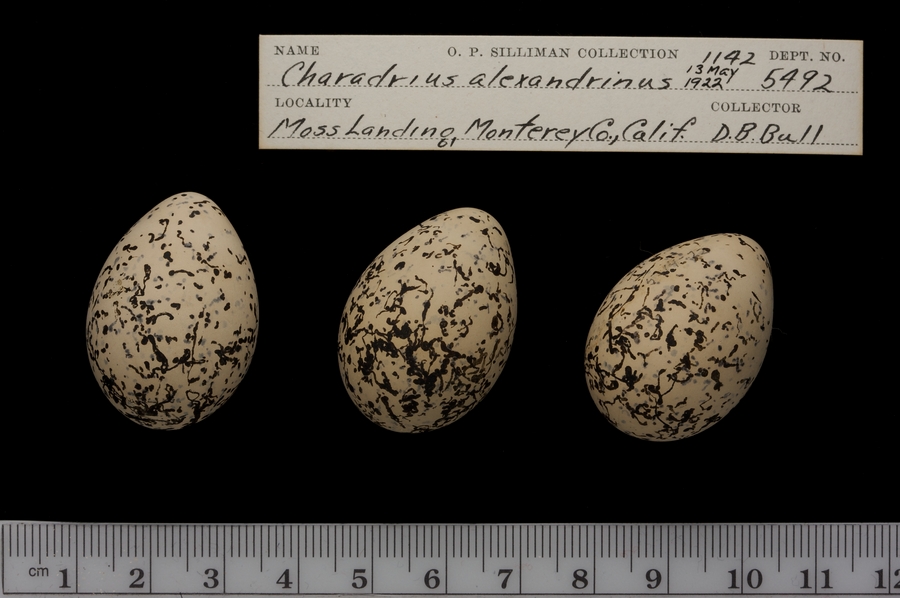 NAME O. P. SILLIMAN COLLECTION 1142 DEPT. NO.
Charadrius alexandrinus 13 May 1922 5492
LOCALITY COLLECTOR
Moss Landing, Monterey Co., Calif. D.B. Bull
cm 1 2 3 4 5 6 7 8 9 10 11 12